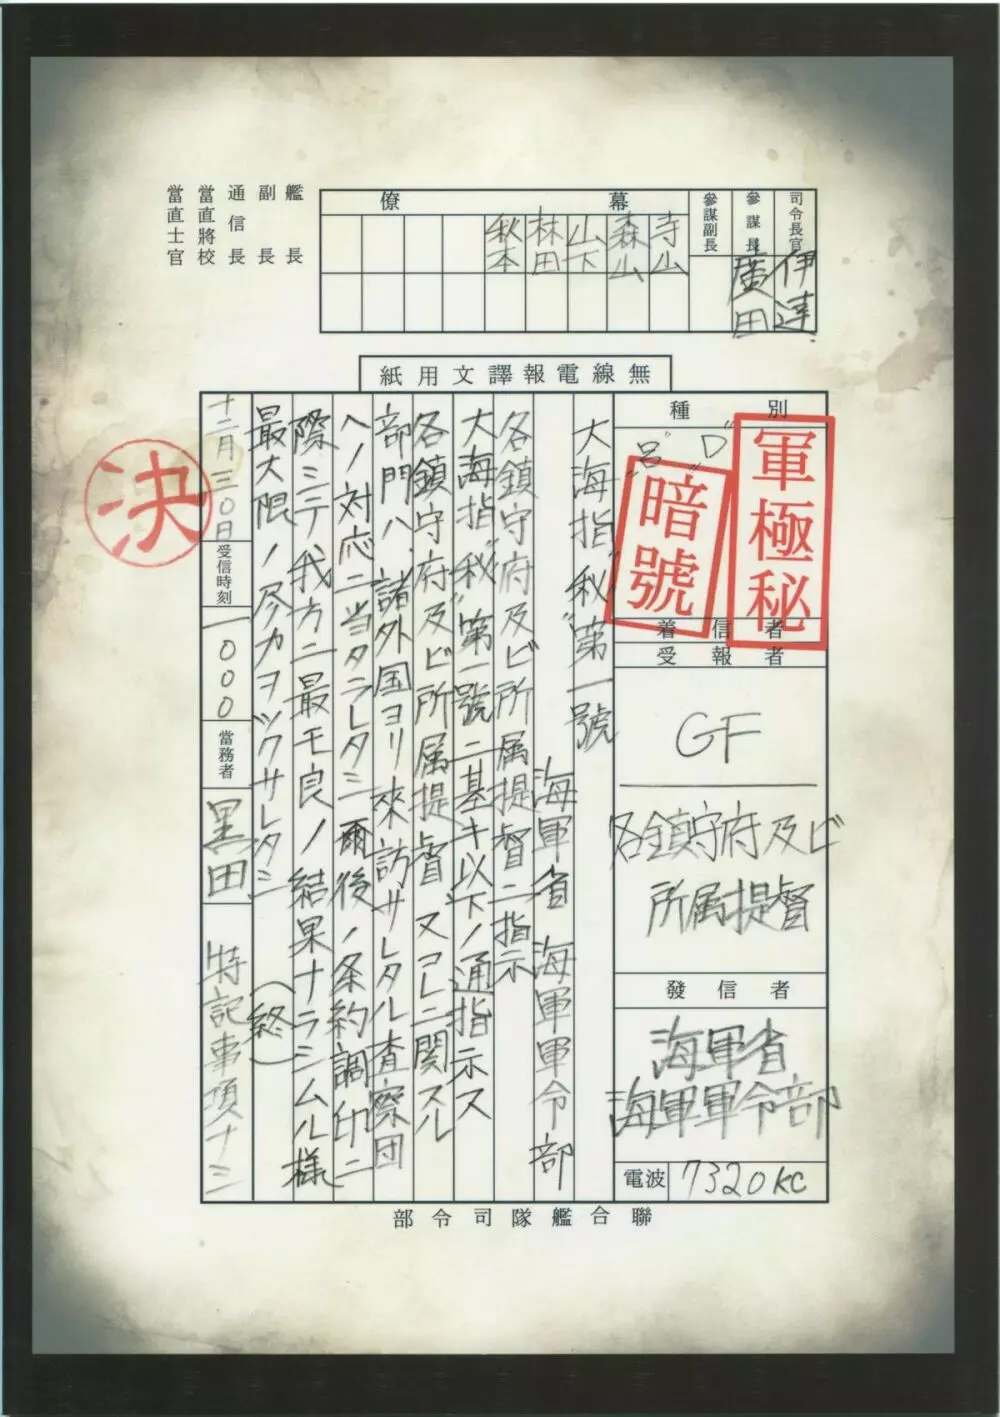 司令長官
伊達
參謀長
廣田
參謀副長
幕僚
寺山
森山
山下
林田
秋本
艦長
副長
通信長
當直將校
當直士官
無線電報譯文用紙
種別
軍極秘
"D"
"呂"
暗號
着信者
受報者
GF
各鎮守府及ビ
所属提督
發信者
海軍省
海軍軍令部
電波
7320KC
大海指"秘"第一號
海軍省 海軍軍令部
各鎮守府及ビ所属提督ニ指示
大海指"秘"第一號ニ基キ以下ノ通指示ス
各鎮守府及ビ所属提督、又コレニ関スル
部門ハ、諸外国ヨリ來訪サレタル査察団
ヘノ対応ニ当タラレタシ 爾後ノ条約調印ニ
際ミテ我方ニ最モ良ノ結果ナラシムル様
最大限ノ尽力ヲツクサレタシ (終)
十二月三〇日
受信時刻
一000
當務者
黒田
特記事項ナシ
決
聯合艦隊司令部